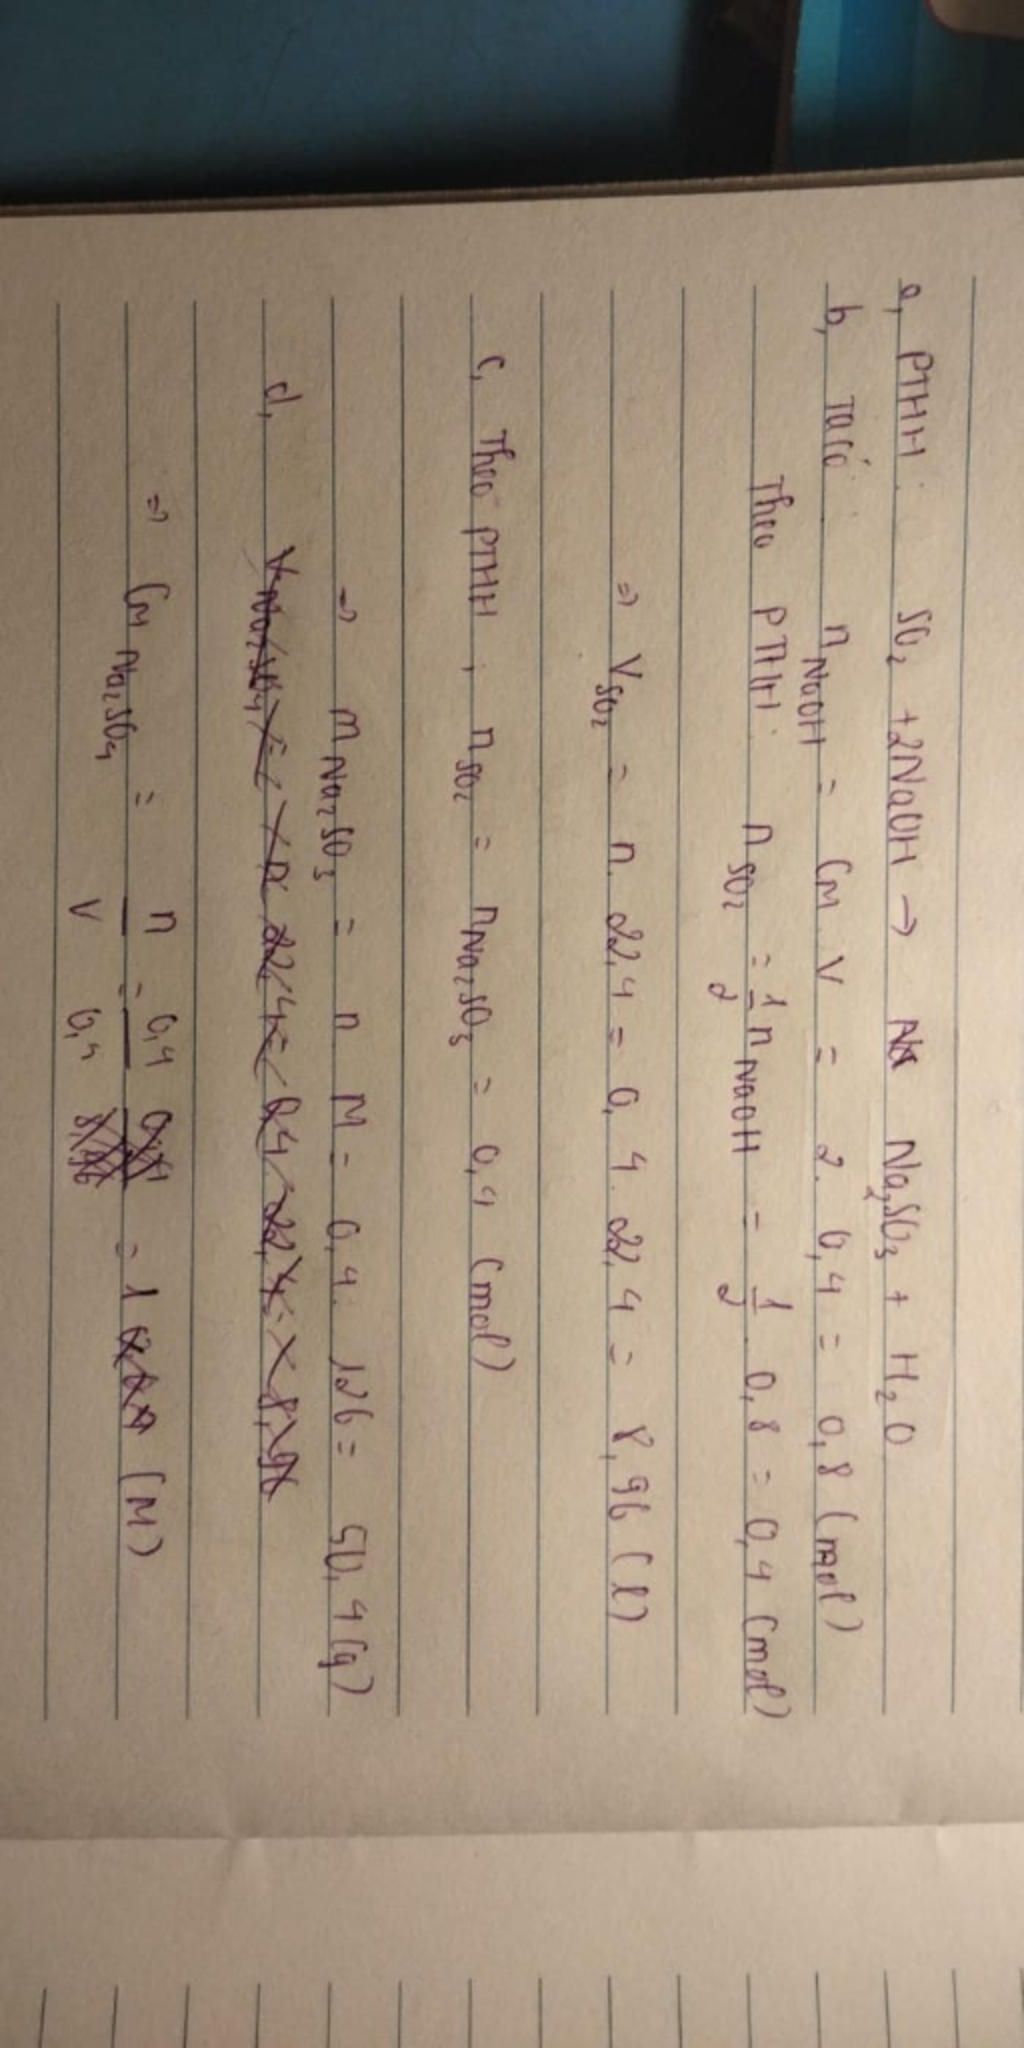 a, PTHH: SO₂ + 2NaOH → Na₂SO₃ + H₂O
b, Ta có n NaOH = CM. V = 2. 0,4 = 0,8 (mol)
Theo PTHH: n SO₂ = 1/2 n NaOH = 1/2 . 0,8 = 0,4 (mol)
=> V SO₂ = n. 22,4 = 0,4. 22,4 = 8,96 (l)
c, Theo PTHH: n SO₂ = n Na₂SO₃ = 0,4 (mol)
=> m Na₂SO₃ = n M = 0,4. 126 = 50,4 (g)
d,
=> CM Na₂SO₄ = n/V = 0,4/0,4 = 1 (M)